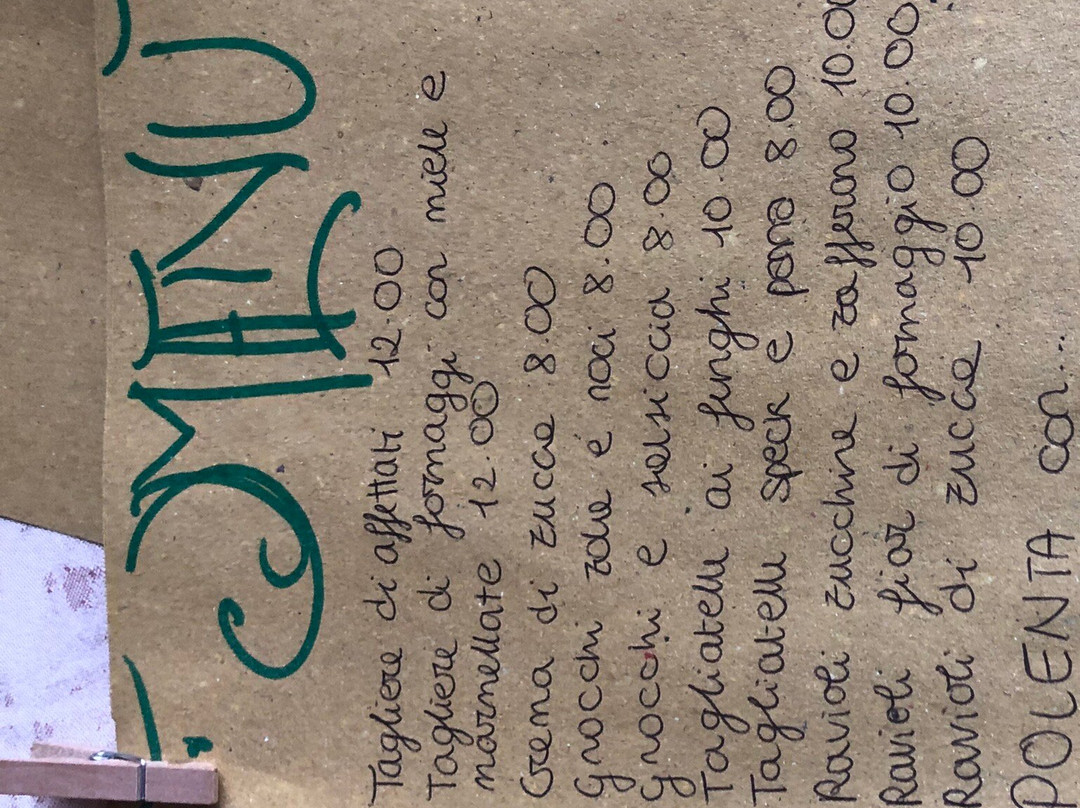 MENÙ
Tagliere di affettati 12.00
Tagliere di formaggi con miele e
marmellate 12.00
Crema di zucca 8.00
Gnocchi zola e noci 8.00
Gnocchi e salsiccia 8.00
Tagliatelle ai funghi 10.00
Tagliatelle speck e panna 8.00
Ravioli zucchine e zafferano 10.00
Ravioli fior di formaggio 10.00
Ravioli di zucca 10.00
POLENTA con...